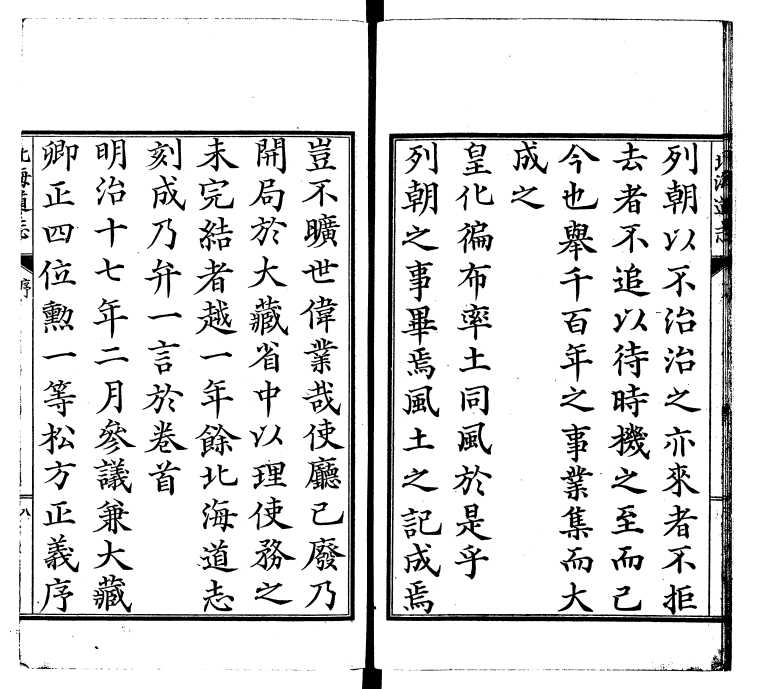 北海道志
列朝以不治治之亦來者不拒
去者不追以待時機之至而已
今也舉千百年之事業集而大
成之
皇化徧布率土同風於是乎
列朝之事畢焉風土之記成焉
豈不曠世偉業哉使廳已廢乃
開局於大藏省中以理使務之
未完結者越一年餘北海道志
刻成乃弁一言於卷首
明治十七年二月參議兼大藏
卿正四位勳一等松方正義序
北海道志
序
八